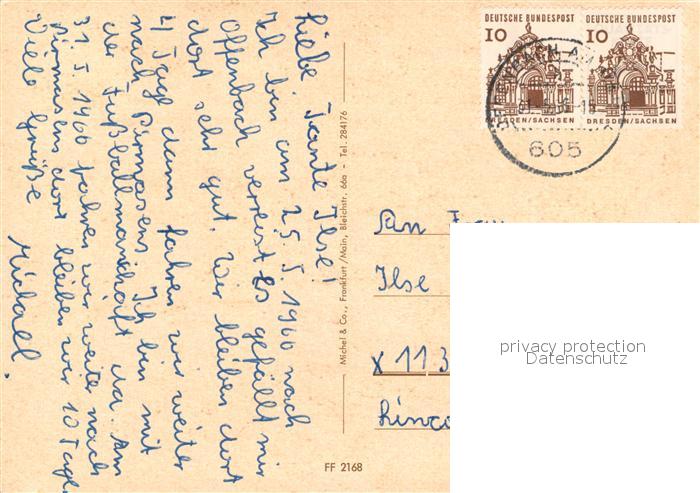 Liebe Tante Ilse!
Ich bin am 25. I. 1960 nach
Offenbach verreist Es gefällt mir
dort seht gut. Wir bleiben dort
4 Tage dann fahren wir weiter
nach Pirmasens. Ich bin mit
der Fußballmanschaft da. Am
31. I. 1960 fahren wir weiter nach
Pirmasens dort bleiben wir 10 Tage.
Viele Grüße
Michael.
Michel & Co., Frankfurt/Main, Bleichstr. 66a - Tel. 284176
DEUTSCHE BUNDESPOST
10
DRESDEN/SACHSEN
DEUTSCHE BUNDESPOST
10
DRESDEN/SACHSEN
605
An
Ilse
X 11 3
privacy protection
Datenschutz
FF 2168